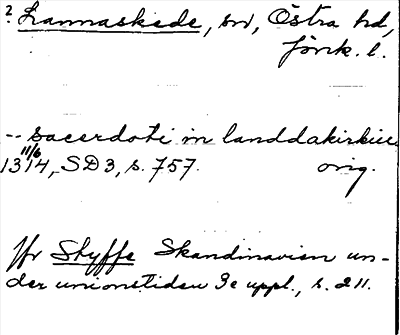 ? Lannaskede, sn, Östra hd,
Jönk. l.
-- sacerdoti in landdakirkiu
1314 11/6, SD 3, s. 757. orig.
Jfr Styffe Skandinavien un-
der unionstiden 3e uppl., s. 211.